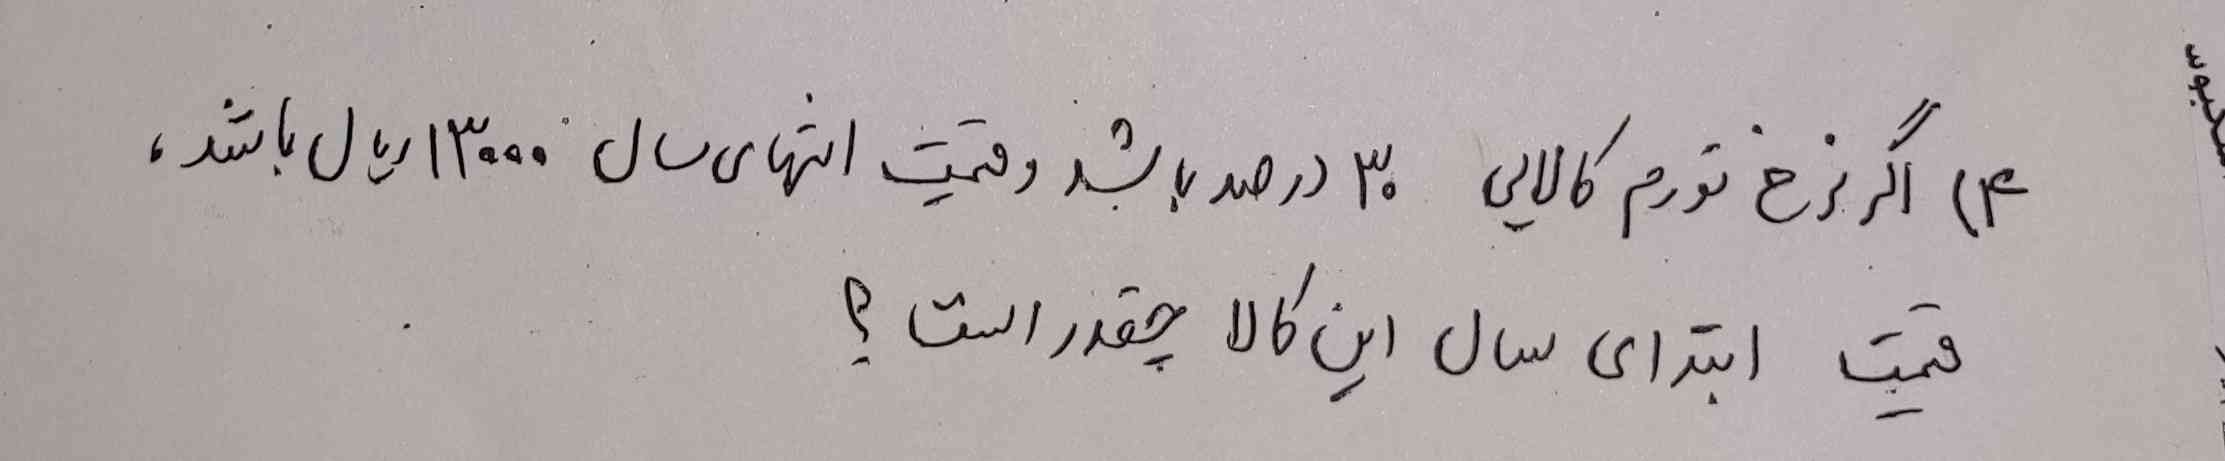 ۴) اگر نرخ تورم کالایی ۳۰ درصد باشد و قیمت انتهای سال ۱۳۰۰۰۰ ریال باشد،
قیمت ابتدای سال این کالا چقدر است؟